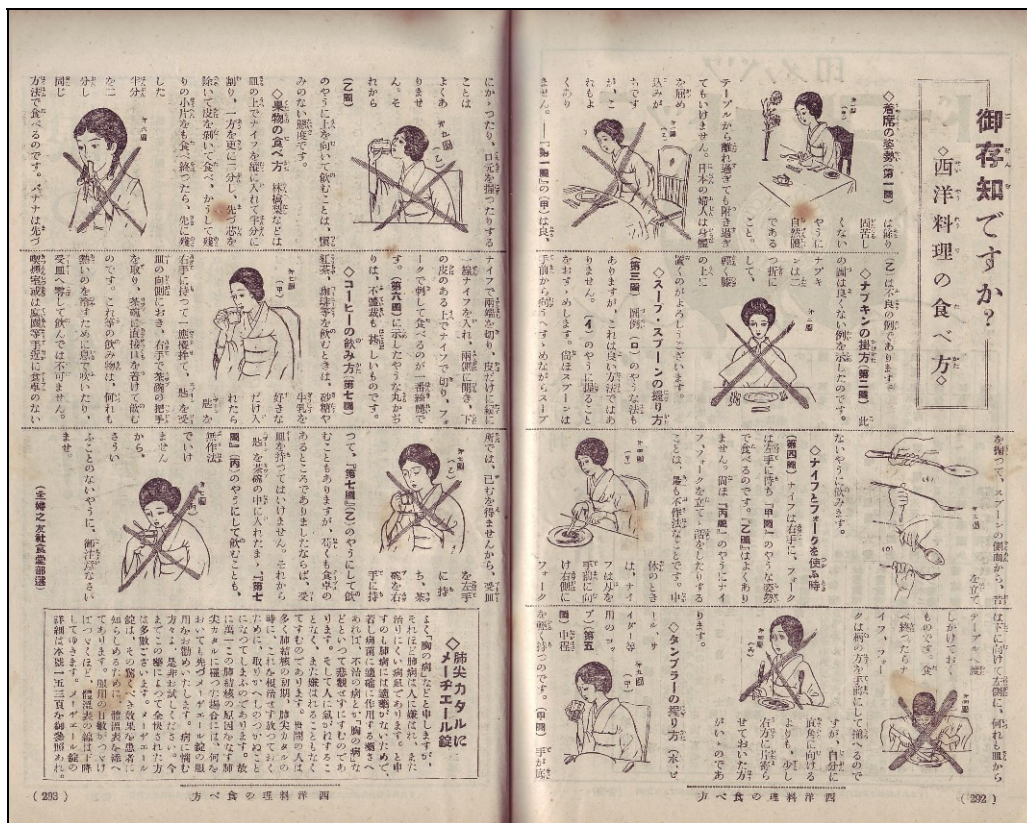 御存知ですか?
◇西洋料理の食べ方◇
◇着席の姿勢(第一圖)
テーブルから離れ過ぎても附き過ぎ
てもいけません。日本の婦人は身體
を屈め
込みが
ちです
が、こ
れもよ
くあり
ません。――『第一圖』の(甲)は良、
(乙)は不良の例であります。
◇ナプキンの掛方(第二圖) 此
の圖は良くない例を示したのです。
ナプキ
ンは二
つ折に
して、
輕く膝
の上に
置くのがよろしうございます。
は餘り
固苦し
くない
やうに
自然體
である
こと。
◇スープ・スプーンの握り方
(第三圖) 圖例(ロ)のやうな法も
ありますが、これは良い方法ではあ
りません。(イ)のやうに握ること
をおすゝめします。尚ほスプーンは
手前から向うへすゝめながらスープ
を掬つて、スプーンの側面から、音
を立て
ないやうに飲みます。
◇ナイフとフォークを使ふ時
(第四圖) ナイフは右手に、フォーク
は左手に持ち『甲圖』のやうな姿勢
で食べるのです。『乙圖』はよくあり
ません。尚ほ『丙圖』のやうにナイ
フ、フォークを立てゝ話をしたりする
ことは、最も不作法なことです。中
休のとき
は、ナイ
フは刃を
手前に向
け右側に
フォーク
は下に向けて左側に、何れも皿から
テーブルへ渡
しかけておく
ものです。食
べ終つたらナ
イフ、フォー
クは柄の方を手前にして揃へるので
すが、自分に
直角に向ける
よりも、少し
右方に片寄ら
せておいた方
がいゝのであ
ります。
◇タンブラーの握り方(水、ビ
ール、サ
イダー等
用のコッ
プ)(第五
圖)中程
を輕く持つのです。(甲圖) 手が底
にかゝつたり、口元を握つたりする
ことは
よくあ
りませ
ん。そ
れから
(乙圖)
のやうに上を向いて飲むことは、愼
みのない態度です。
◇果物の食べ方 林檎梨などは
皿の上でナイフを縱に入れて半分に
割り、一方を更に二分し、先づ芯を
除いて皮を剥いて食べ、かうして殘
りの小片をも食べ終つたら、先に殘
した
半分
を二
分し
同じ
方法で食べるのです。バナナは先づ
ナイフで兩端を切り、皮だけに縱に
一線ナイフを入れ、兩側に開き、下
の皮のある上でナイフで切り、フォ
ークで刺して食べるのが一番綺麗で
す。(第六圖)に示したやうな丸かぢ
りは、不體裁も甚しいものです。
◇コーヒーの飲み方(第七圖)
紅茶、珈琲等を飲むときは、砂糖や
牛乳を
好きな
だけ入
れたら
匙を
右手に持つて一應攪拌て、匙を受
皿の向側におき、右手で茶碗の把手
を取り、茶碗に直接口を着けて飲む
のです。これ等の飲み物は、何れも
熱いのを冷すために息で吹いたり、
受皿へ零して飲んでは不可ません。
喫煙室或は庭園等手近に食卓のない
所では、已むを得ませんから、受皿
を左手
に持
ち、茶
碗を右
手に持
つて、『第七圖』(乙)のやうにして飲
むこともありますが、苟くも食卓の
あるところでありましたならば、受
皿を持つてはいけません。それから
匙を茶碗の中に入れたまゝ、『第七
圖』(丙)のやうにして飲むことも、
無作法
でいけ
ません
から、
さうい
ふことのないやうに、御注意なさい
ませ。
(全・婦之友社食堂部選)
◇肺尖カタルに
メーチエール錠
よく『胸の病』などと申しますが、
それほど肺病は人に嫌はれ、また
治りにくい病氣であります。と申
すのも肺病には適藥がないためで、
若し病菌に適確に作用する藥さへ
あれば、不治の病とか『胸の病』な
どといつて悲觀せずにすむのであ
ります。そして人に氣がねするこ
となく、また嫌はれることもなく
てすむのであります。世間の人は
多く肺結核の初期、肺尖カタルの
時に、これを根治せず放つておく
ために、取りかへしのつかぬこと
になつてしまふのであります。故
に萬一この肺結核の原因をなす肺
尖カタルに罹つた場合には、何を
おいても先づメーチエール錠の服
用をお勸めいたします。病に惱む
方々よ、是非お試しください。今
までこの藥によつて全快された方
は多數ございます。メーチエール
錠は、その驚くべき效果を患者に
知らしめるために、體溫表を添へ
てあります。服用の日數がつづけ
ばつづくほど、體溫表の線は下降
してゆきます。メーチエール錠の
詳細は本號一五三頁を御參照あれ。
西洋料理の食べ方
(292)
西洋料理の食べ方
(293)